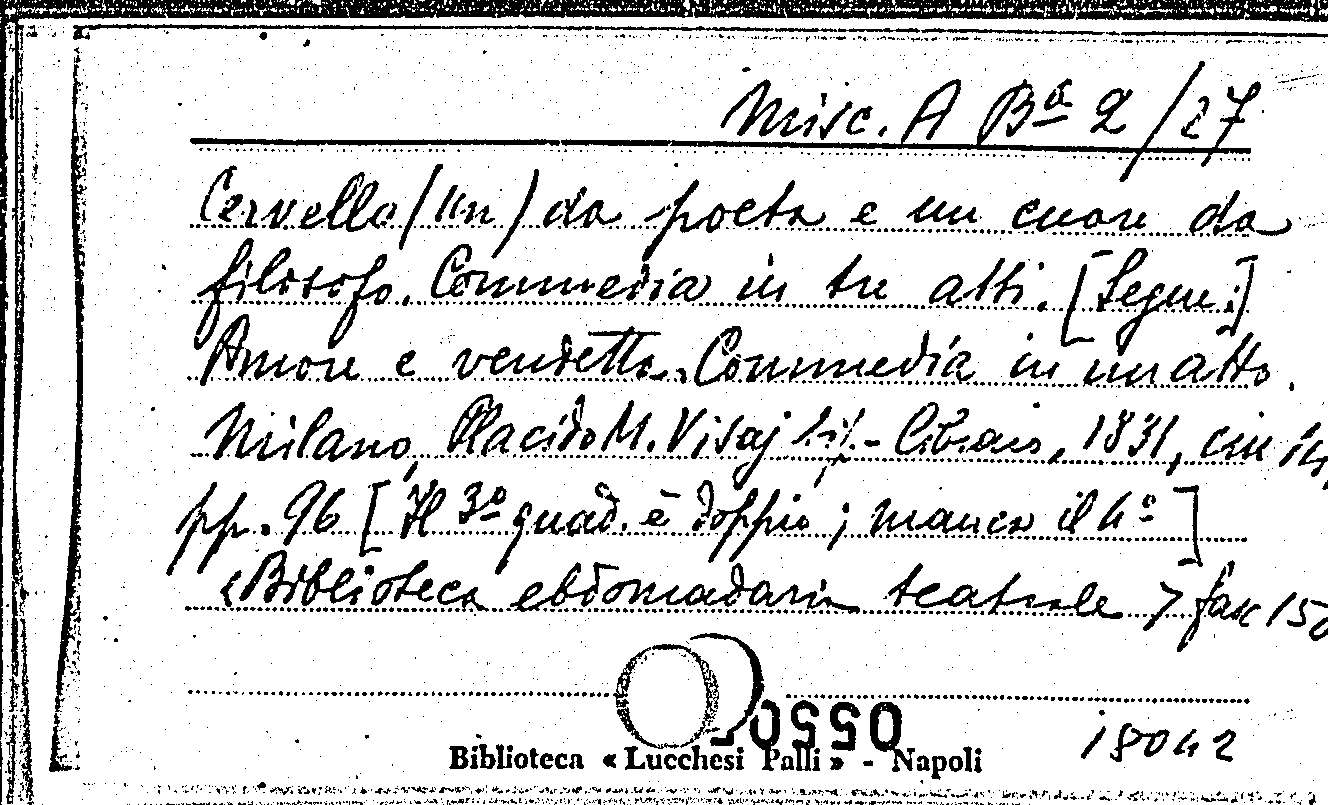 Misc. A Bª 2/27
Cervello (Un) da poeta e un cuore da
filosofo. Commedia in tre atti. [Segue:]
Amore e vendetta. Commedia in un atto.
Milano, Placido M. Visaj tip.-Libraio, 1831, cm 14,
pp. 96 [Il 3º quad. è doppio; manca il 4º]
«Biblioteca ebdomadaria teatrale» fasc 150
0550
18042
Biblioteca «Lucchesi Palli» - Napoli